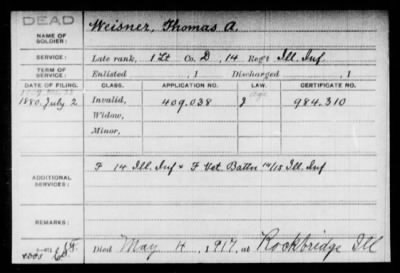 DEAD
NAME OF SOLDIER: Weisner, Thomas A.
SERVICE: Late rank, 1 Lt Co. D, 14 Reg't Ill. Inf.
TERM OF SERVICE: Enlisted , 1 Discharged , 1
DATE OF FILING. CLASS. APPLICATION NO. LAW. CERTIFICATE NO.
1880, July 2 Invalid, 409.038 984.310
Widow,
Minor,
ADDITIONAL SERVICES: F 14 Ill. Inf & F Vet. Battn 14/15 Ill. Inf
REMARKS:
Died May 4, 1917, at Rockbridge Ill